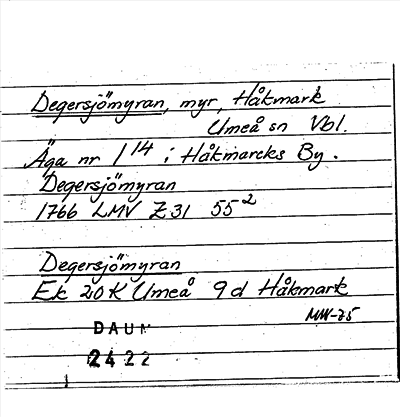 Degersjömyran, myr, Håkmark
Umeå sn Vbl.
Äga nr 1 14 i Håkmarcks By.
Degersjömyran
1766 LMV Z31 55²
Degersjömyran
Ek 20K Umeå 9d Håkmark
MW-75
DAUM
2422